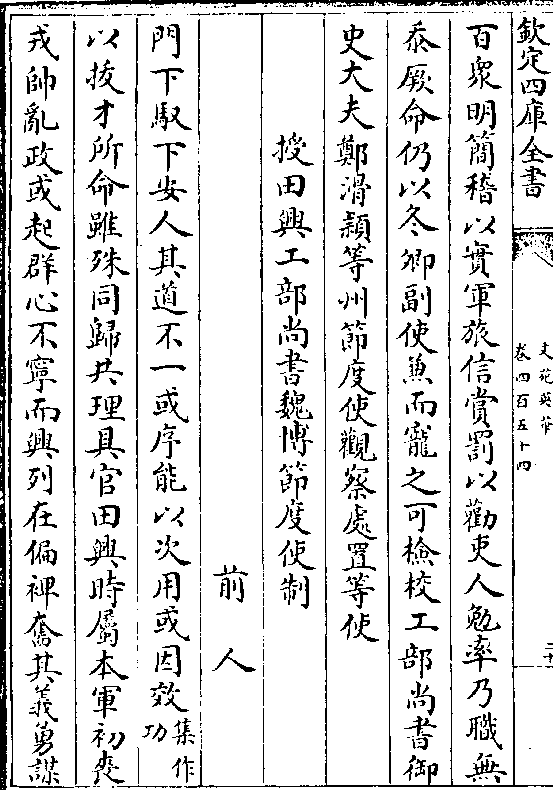 欽定四庫全書
文苑英華
卷四百五十四
二十
百衆明簡稽以實軍旅信賞罰以勸吏人勉率乃職無
忝厥命仍以冬卿副使兼而寵之可檢校工部尚書御
史大夫鄭滑潁等州節度使觀察處置等使
授田興工部尚書魏博節度使制
前人
門下馭下安人其道不一或序能以次用或因效集作功
以拔才所命雖殊同歸共理具官田興時屬本軍初喪
戎帥亂政或起群心不寧而興列在偏裨奮其義勇謀